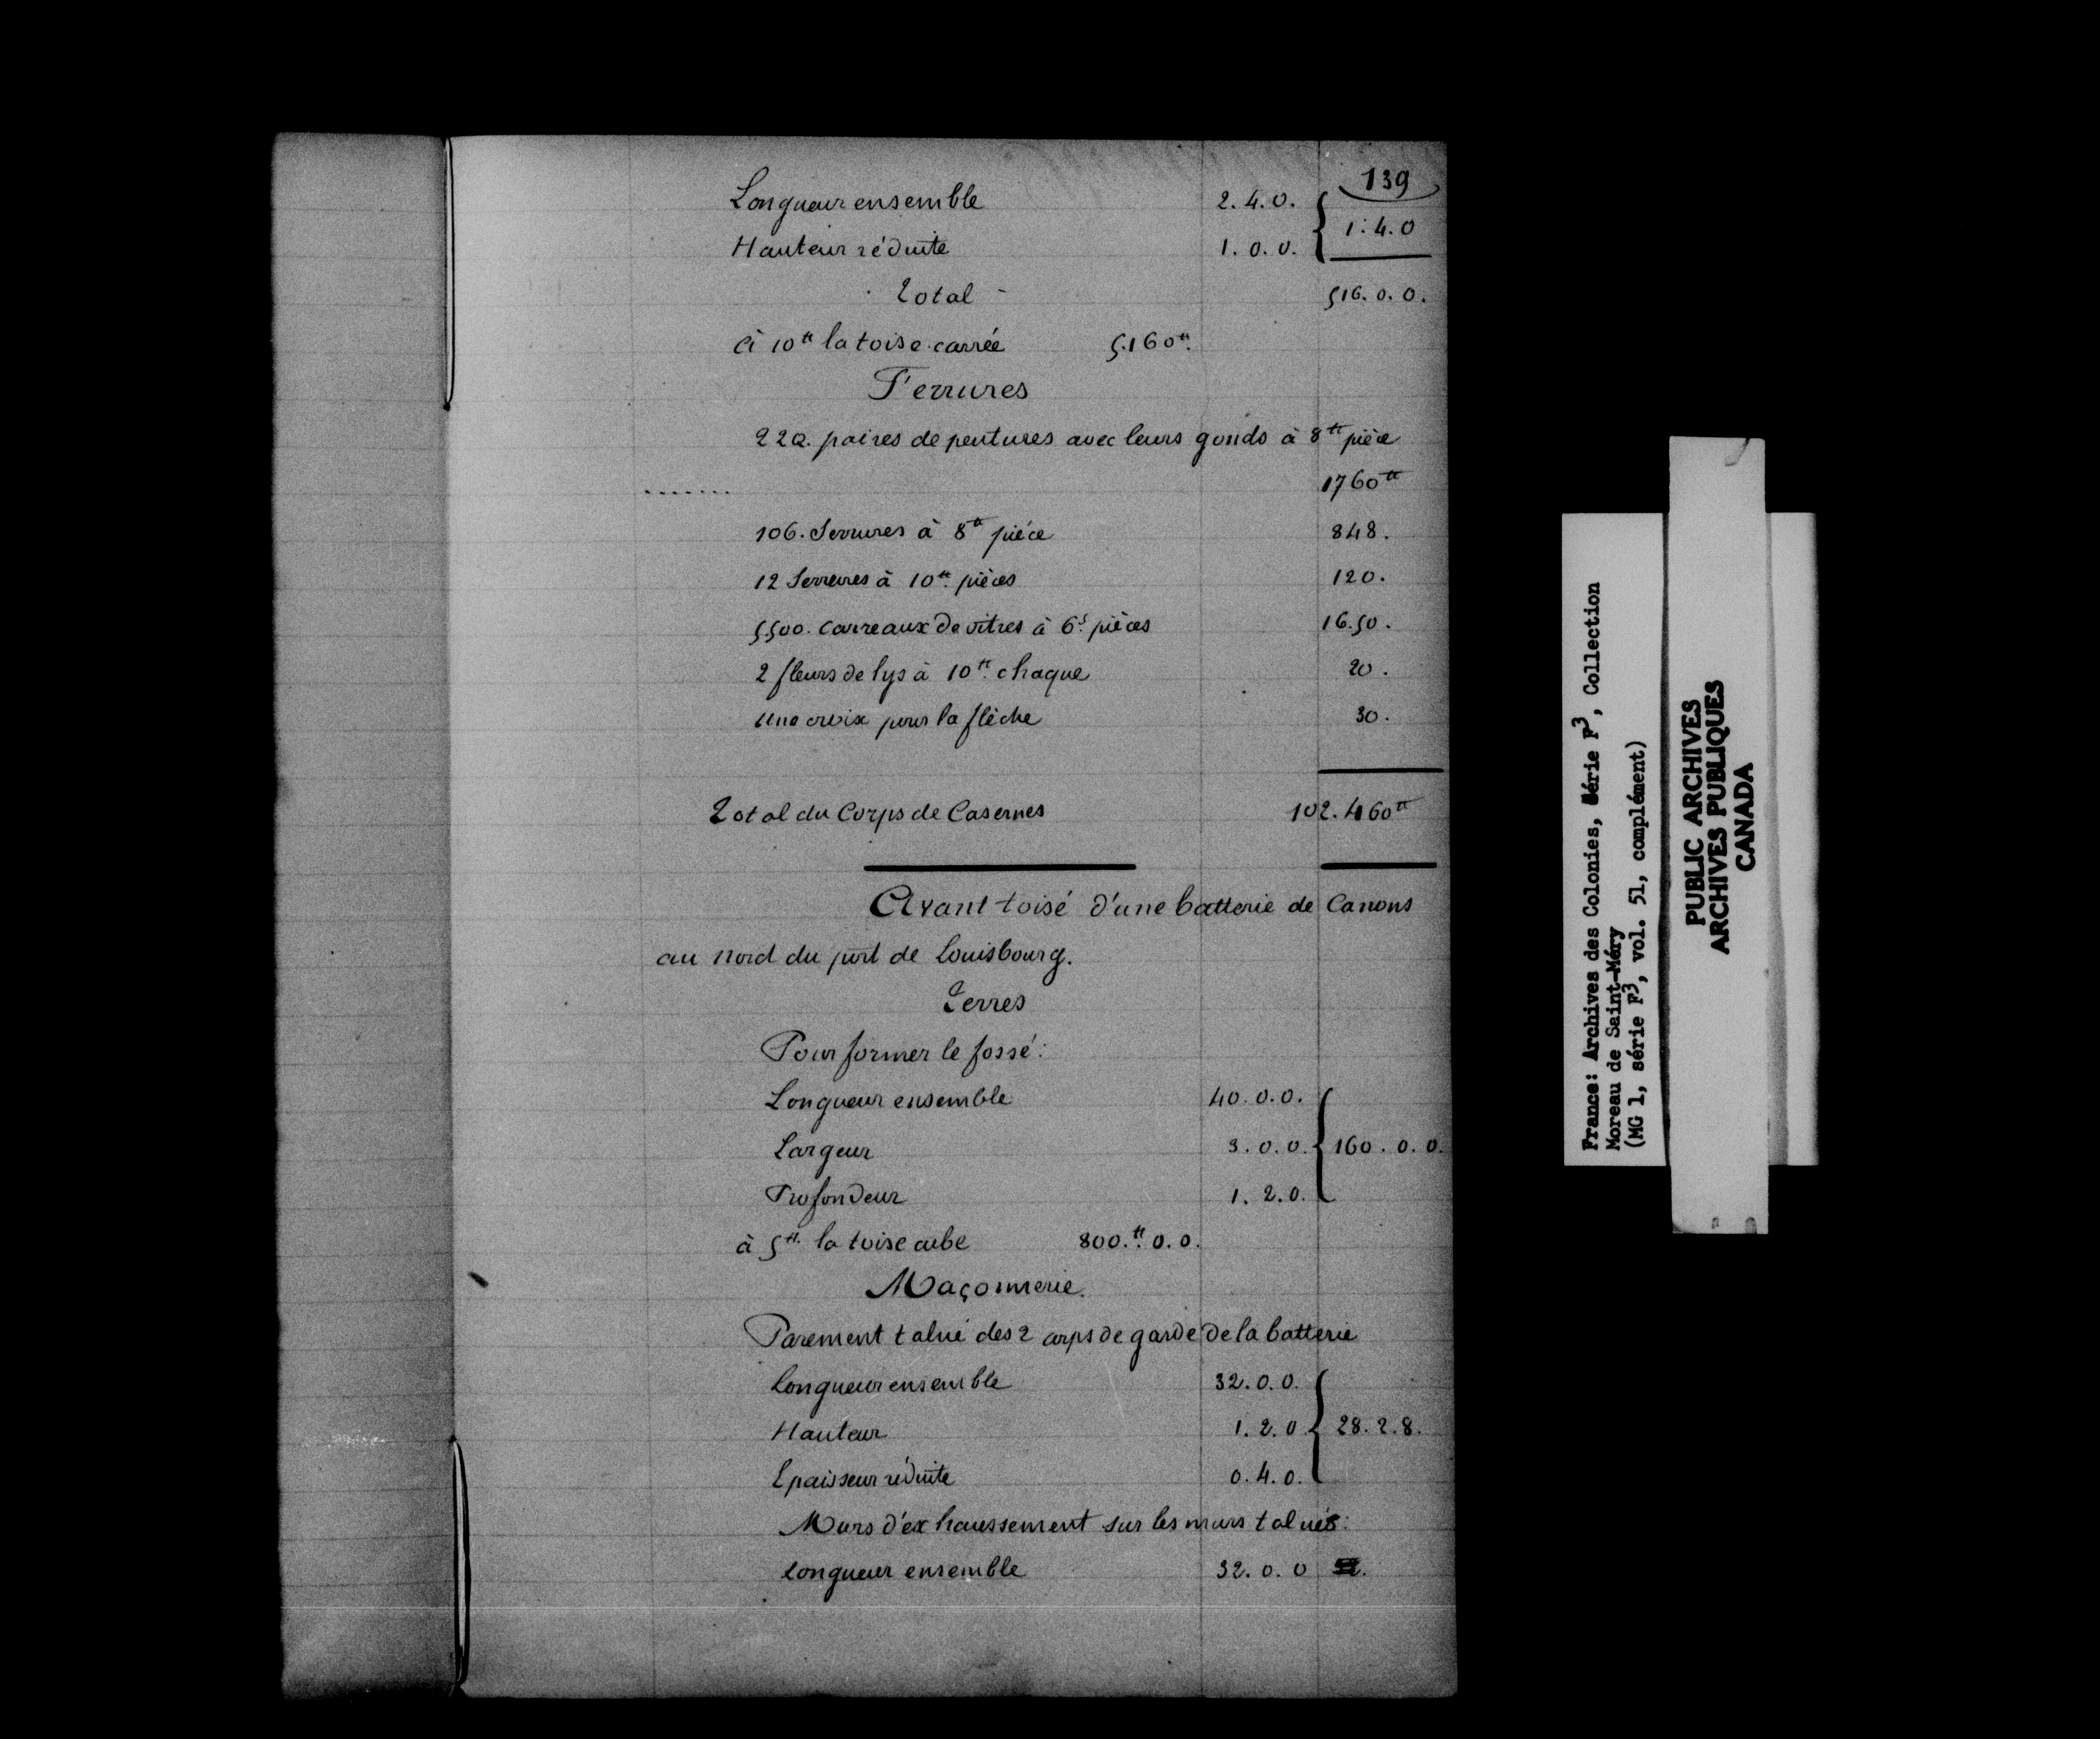 139
Longueur ensemble 2.4.0. { 1.4.0
Hauteur réduite 1.0.0.
Total - 516.0.0.
à 10tt la toise carrée 5.160tt.
Ferrures
220. paires de pentures avec leurs gonds à 8tt pièce
....... 1760tt
106. Serrures à 8tt pièce 848.
12 Serrures à 10tt. pièces 120.
5500. Carreaux de vitres à 6s. pièces 16.50.
2 fleurs de lys à 10tt. chaque 20.
Une croix pour la flèche 30.
Total du Corps de Casernes 102.460tt
Avant toisé d'une batterie de Canons
au nord du port de Louisbourg.
Terres
Pour former le fossé:
Longueur ensemble 40.0.0.
Largeur 3.0.0. { 160.0.0.
Profondeur 1.2.0.
à 5tt. la toise cube 800.tt.0.0.
Maçonnerie.
Parement talué des 2 corps de garde de la batterie
Longueur ensemble 32.0.0.
Hauteur 1.2.0 { 28.2.8.
Epaisseur réduite 0.4.0.
Murs d'exhaussement sur les murs talués:
Longueur ensemble 32.0.0
France: Archives des Colonies, Série F3, Collection
Moreau de Saint-Méry
(MG 1, série F3, vol. 51, complément)
PUBLIC ARCHIVES
ARCHIVES PUBLIQUES
CANADA